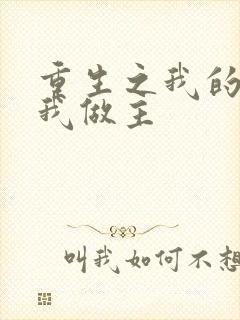 重生之我的
我做主
叫我如何不想